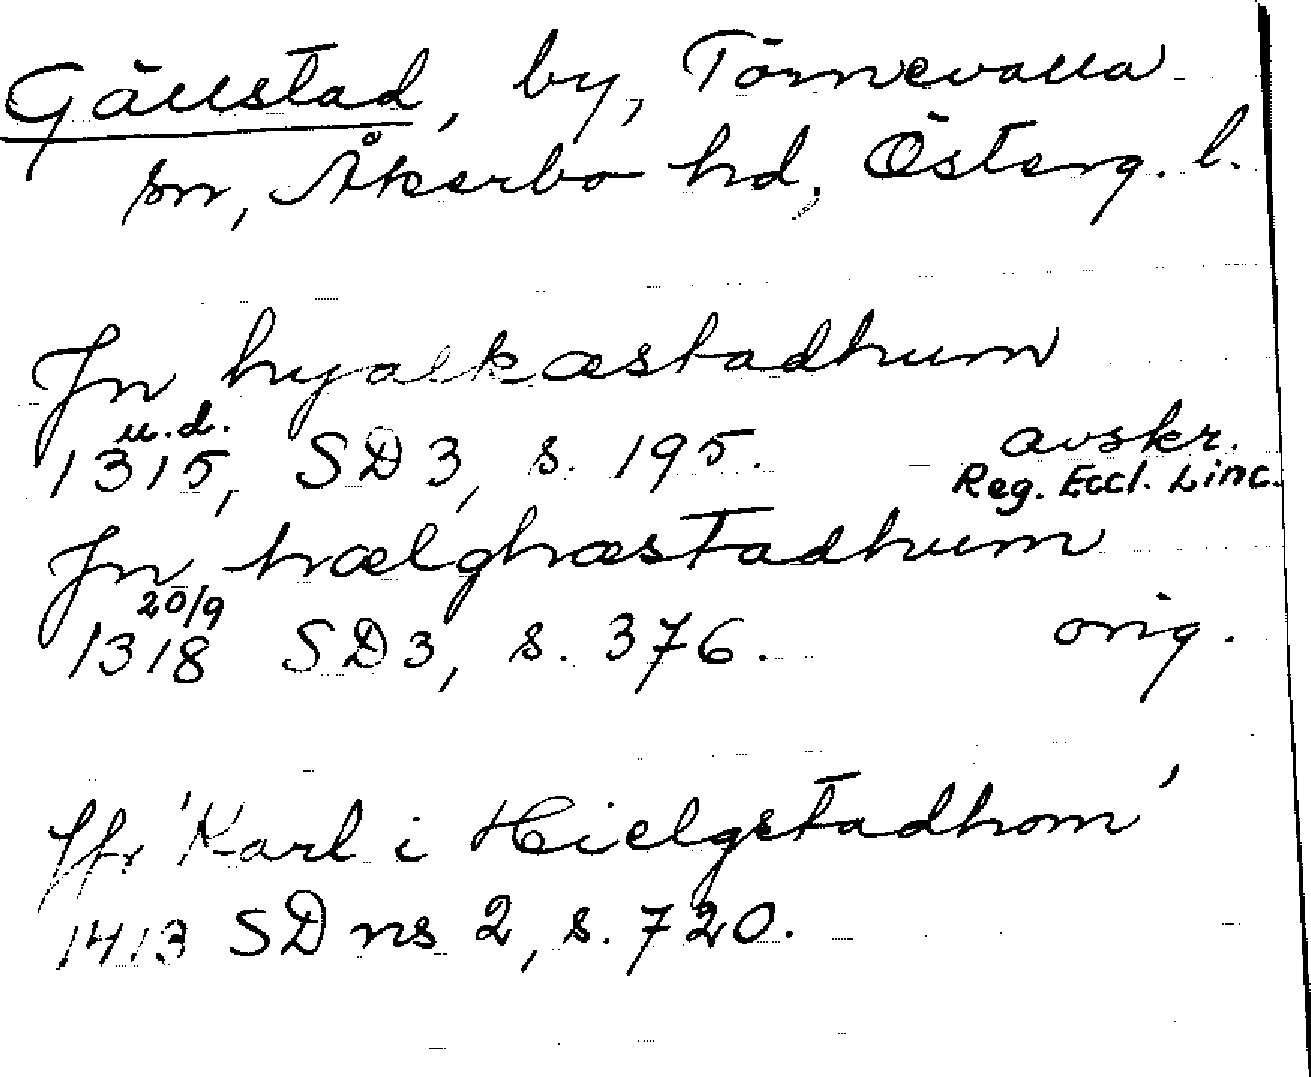 Gällstad, by, Törnevalla
sn, Åkerbo hd, Österg. l.
Jn hyalkæstadhum
u.d.
1315, SD 3, s. 195. avskr.
Reg. Eccl. Linc.
Jn hælghæstadhum
20/9
1318 SD 3, s. 376. orig.
Jfr 'Karl i Hielgstadhom'
1413 SD ns 2, s. 720.